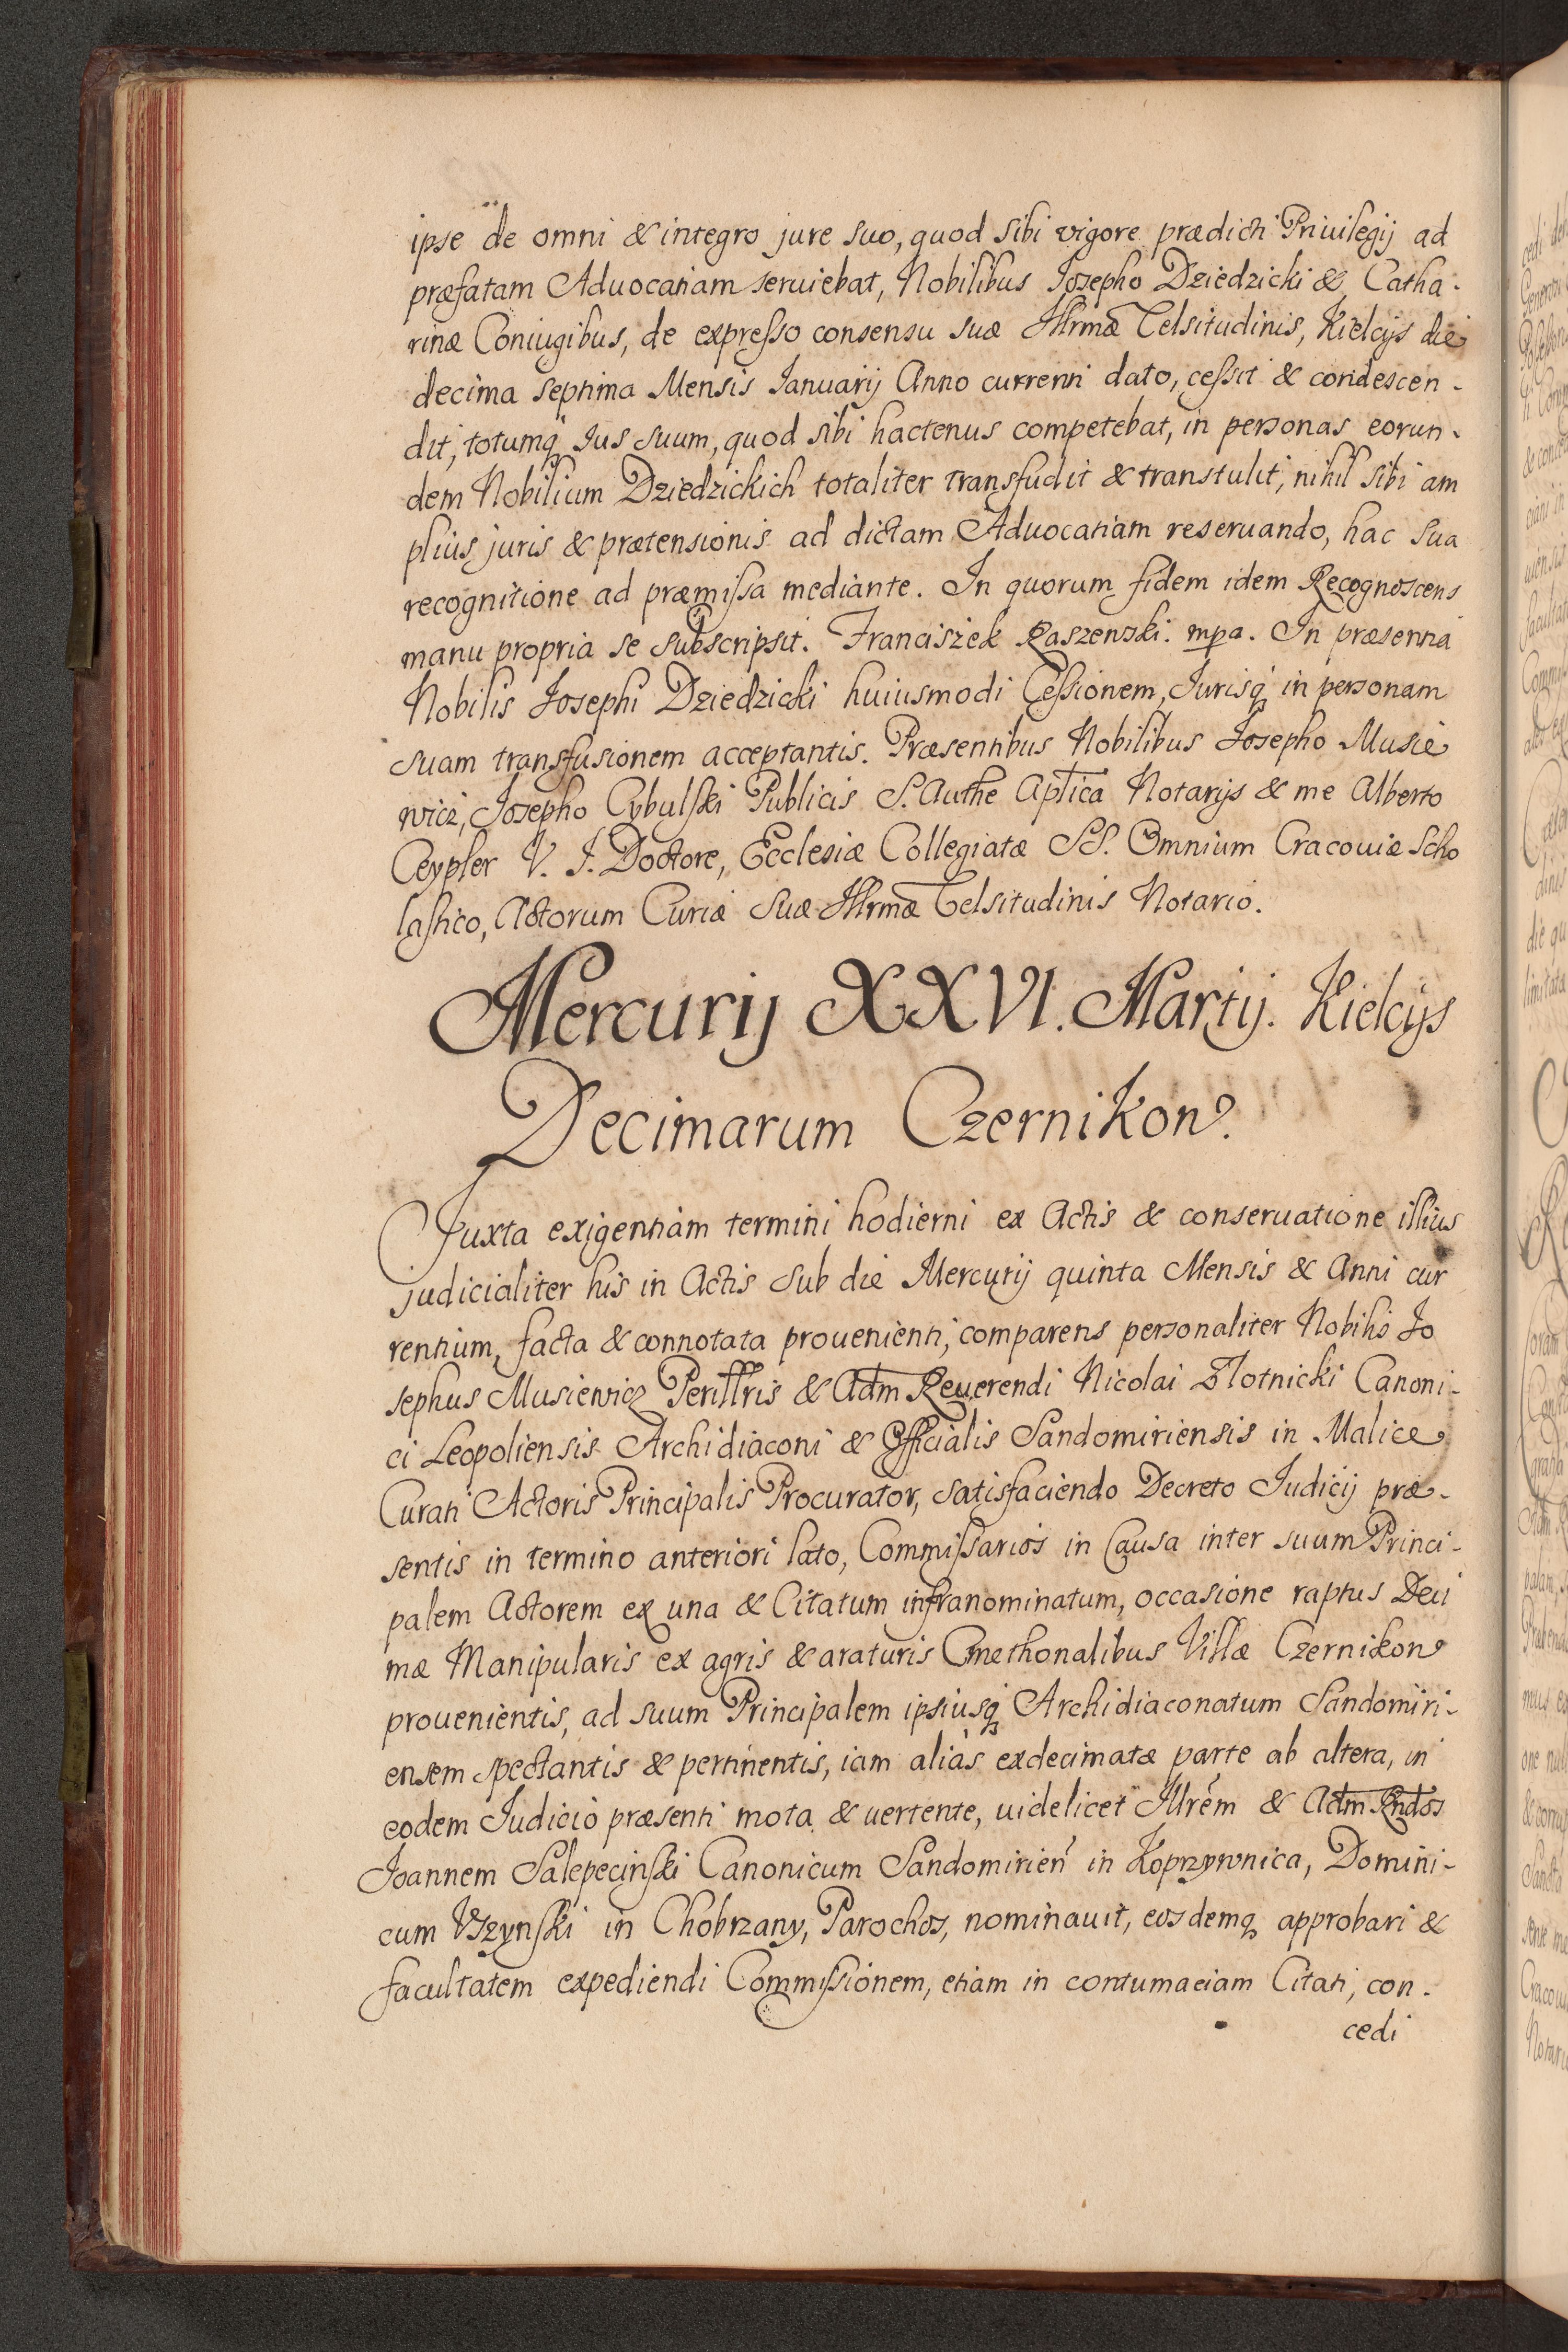 ipse de omni & integro jure suo, quod sibi vigore prædicti Priuilegij ad
præfatam Aduocatiam seruiebat, Nobilibus Josepho Dziedzicki & Catha-
rinæ Coniugibus, de expresso consensu suæ Illrmæ Celsitudinis, Kielcijs die
decima septima Mensis Ianuarij Anno currenti dato, cessit & condescen-
dit, totumq Ius suum, quod sibi hactenus competebat, in personas eorun-
dem Nobilium Dziedzickich totaliter transfudit & transtulit, nihil sibi am
plius juris & prætensionis ad dictam Aduocatiam reseruando, hac sua
recognitione ad præmissa mediante. In quorum fidem idem Recognoscens
manu propria se subscripsit. Franciszek Raszewski. mpa. In præsentia
Nobilis Josephi Dziedzicki huiusmodi Cessionem, Jurisq in personam
suam transfusionem acceptantis. Præsentibus Nobilibus Josepho Musie
wicz, Josepho Cybulski Publicis S. Authe Aptica Notarijs & me Alberto
Ceypler V. J. Doctore, Ecclesiæ Collegiatæ SS. Omnium Cracouiæ Scho
lastico, Actorum Curiæ Suæ Illrmæ Celsitudinis Notario.
Mercurij XXVI. Martij. Kielcijs
Decimarum Czernikow.
Juxta exigentiam termini hodierni ex Actis & conseruatione illius
judicialiter his in Actis sub die Mercurij quinta Mensis & Anni cur
rentium, facta & connotata prouenienti, comparens personaliter Nobilis Jo
sephus Musiewicz Perillris & Adm Reuerendi Nicolai Złotnicki Canoni-
ci Leopoliensis Archidiaconi & Officialis Sandomiriensis in Malice
Curati Actoris Principalis Procurator, satisfaciendo Decreto Judicij præ-
sentis in termino anteriori lato, Commissarios in Causa inter suum Princi-
palem Actorem ex una & Citatum infranominatum, occasione raptus Deci
mæ Manipularis ex agris & araturis Cmethonalibus Villæ Czernikow
prouenientis, ad suum Principalem ipsiusq Archidiaconatum Sandomiri-
ensem spectantis & pertinentis, iam aliàs exdecimatæ parte ab altera, in
eodem Judicio præsenti mota & uertente, uidelicet Illrem & Adm Rndos
Joannem Salepecinski Canonicum Sandomirien in Koprzywnica, Domini-
cum Uszynski in Chobrzany, Parochos, nominauit, eosdemq approbari &
facultatem expediendi Commissionem, etiam in contumaciam Citati, con-
cedi